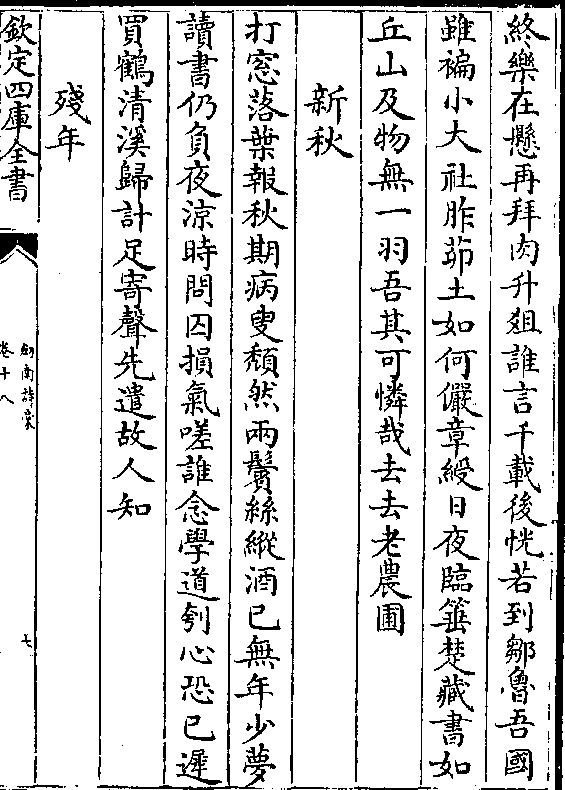 終樂在懸再拜肉升俎誰言千載後恍若到鄒魯吾國
雖褊小大社胙茆土如何儼章綬日夜臨箠楚藏書如
丘山及物無一羽吾其可憐哉去去老農圃
新秋
打窓落葉報秋期病叟頽然兩鬢絲縱酒已無年少夢
讀書仍負夜涼時問囚損氣嗟誰念學道刳心恐已遲
買鶴清溪歸計足寄聲先遣故人知
殘年
欽定四庫全書
劍南詩稾
卷十八
七